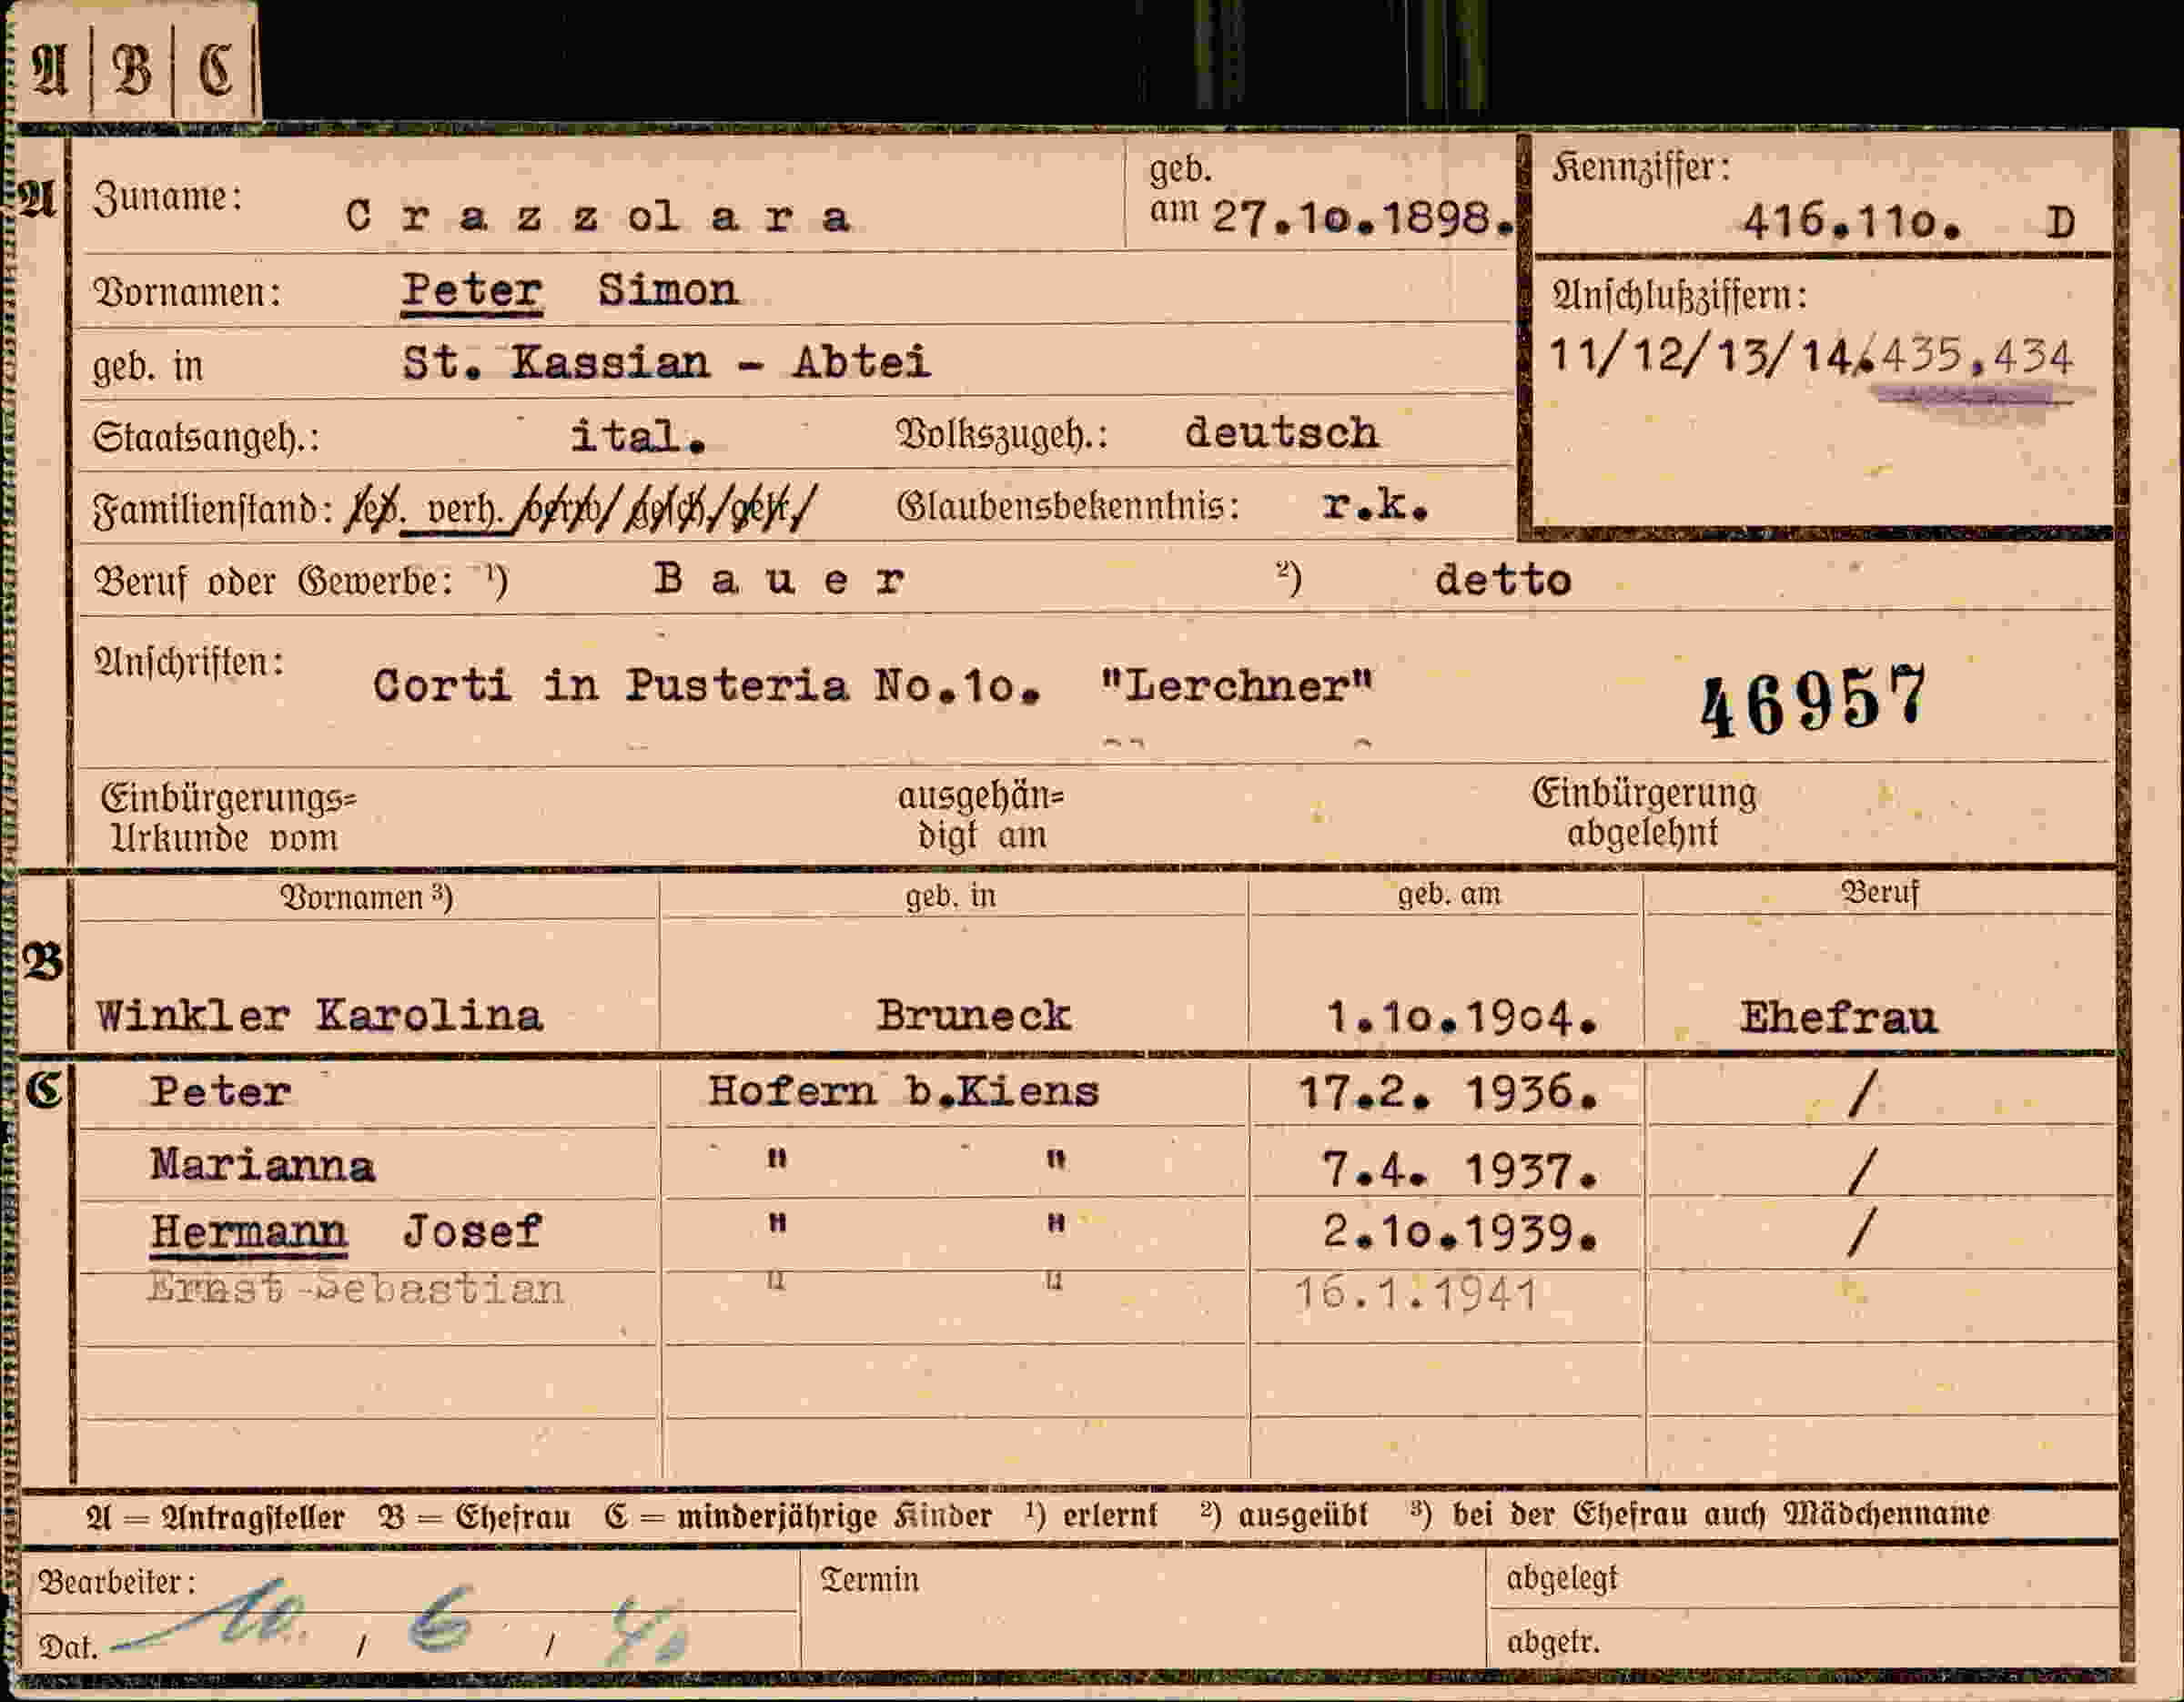 A | B | C
A Zuname: Crazzolara geb. am 27.10.1898. Kennziffer: 416.110. D
Vornamen: Peter Simon Anschlußziffern:
geb. in St. Kassian - Abtei 11/12/13/14.435,434
Staatsangeh.: ital. Volkszugeh.: deutsch
Familienstand: led. verh. verw. gesch. getr. Glaubensbekenntnis: r.k.
Beruf oder Gewerbe: ¹) Bauer ²) detto
Anschriften: Corti in Pusteria No.10. "Lerchner" 46957
Einbürgerungs= ausgehän= Einbürgerung
Urkunde vom digt am abgelehnt
Vornamen ³) geb. in geb. am Beruf
B
Winkler Karolina Bruneck 1.10.1904. Ehefrau
C Peter Hofern b.Kiens 17.2. 1936. /
Marianna " " 7.4. 1937. /
Hermann Josef " " 2.10.1939. /
Ernst Sebastian " " 16.1.1941
A = Antragsteller B = Ehefrau C = minderjährige Kinder ¹) erlernt ²) ausgeübt ³) bei der Ehefrau auch Mädchenname
Bearbeiter: Termin abgelegt
Dat. 10. / 6 / 40 abgetr.